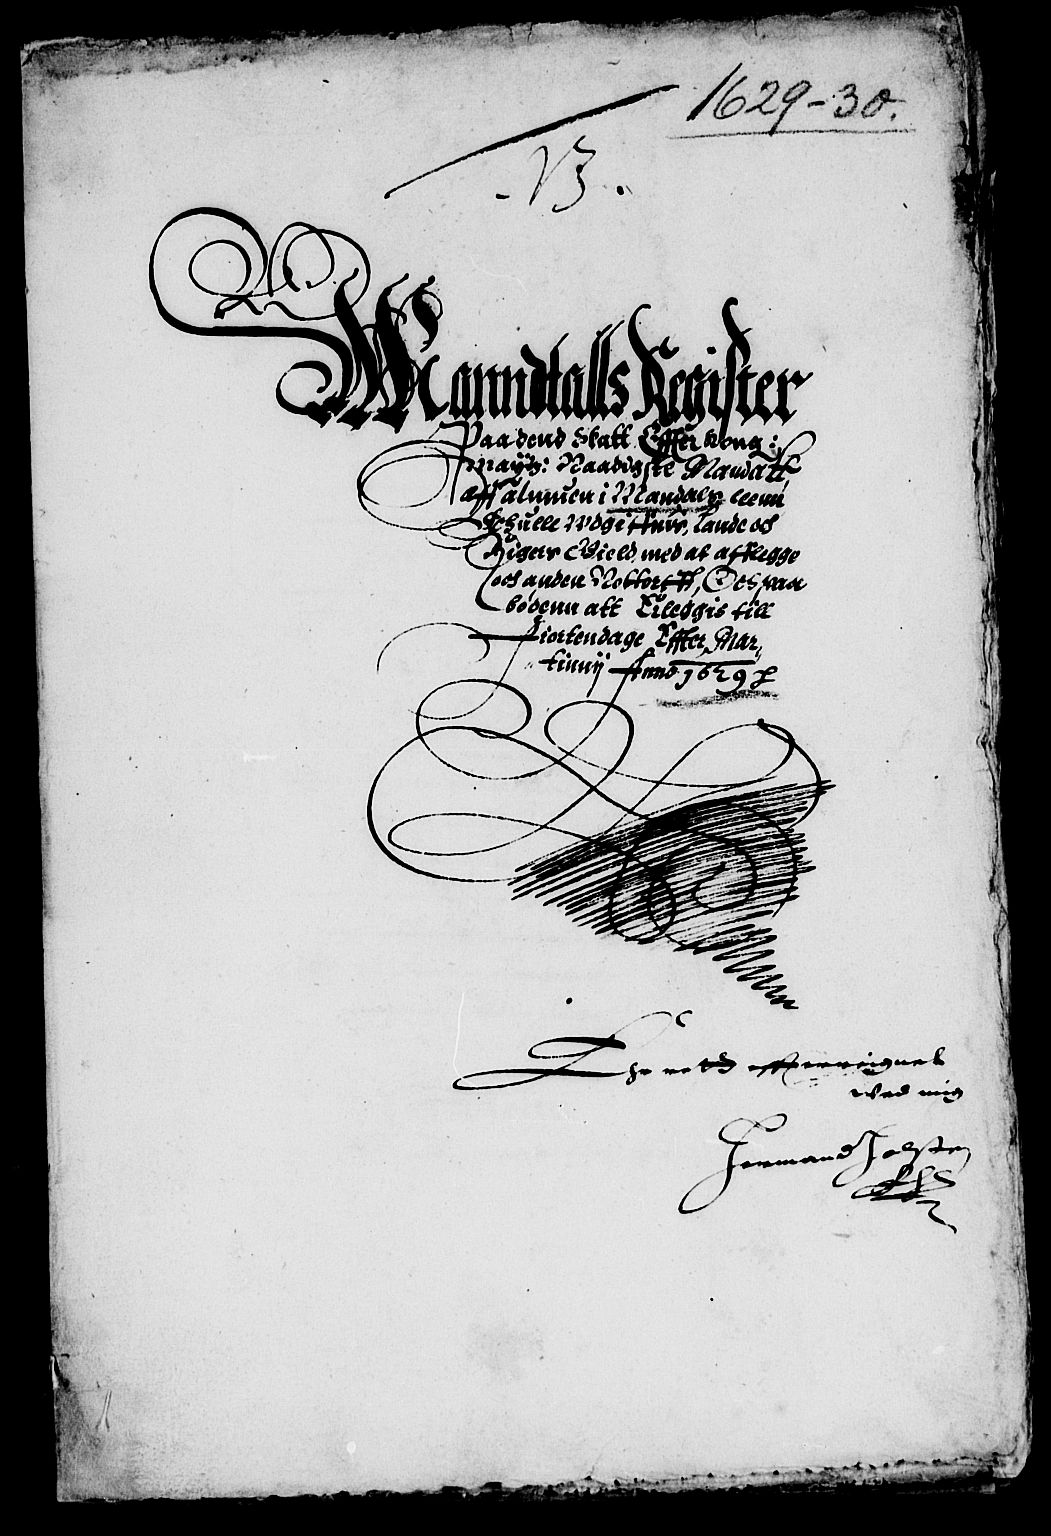 1629-30.
Manndtalls Register
Paa dend Skatt Effter kong:
May: Naadigste Mandatt
aff Almuen i Mandals leenn
Lande och
Rigers Gield, med at afflegge
och anden Nottorfft, Och paa
bödenn att Erleggis till
Fiortendage Effter Mar,
tinnij Anno 1629
ved mig
Hermand Holsten